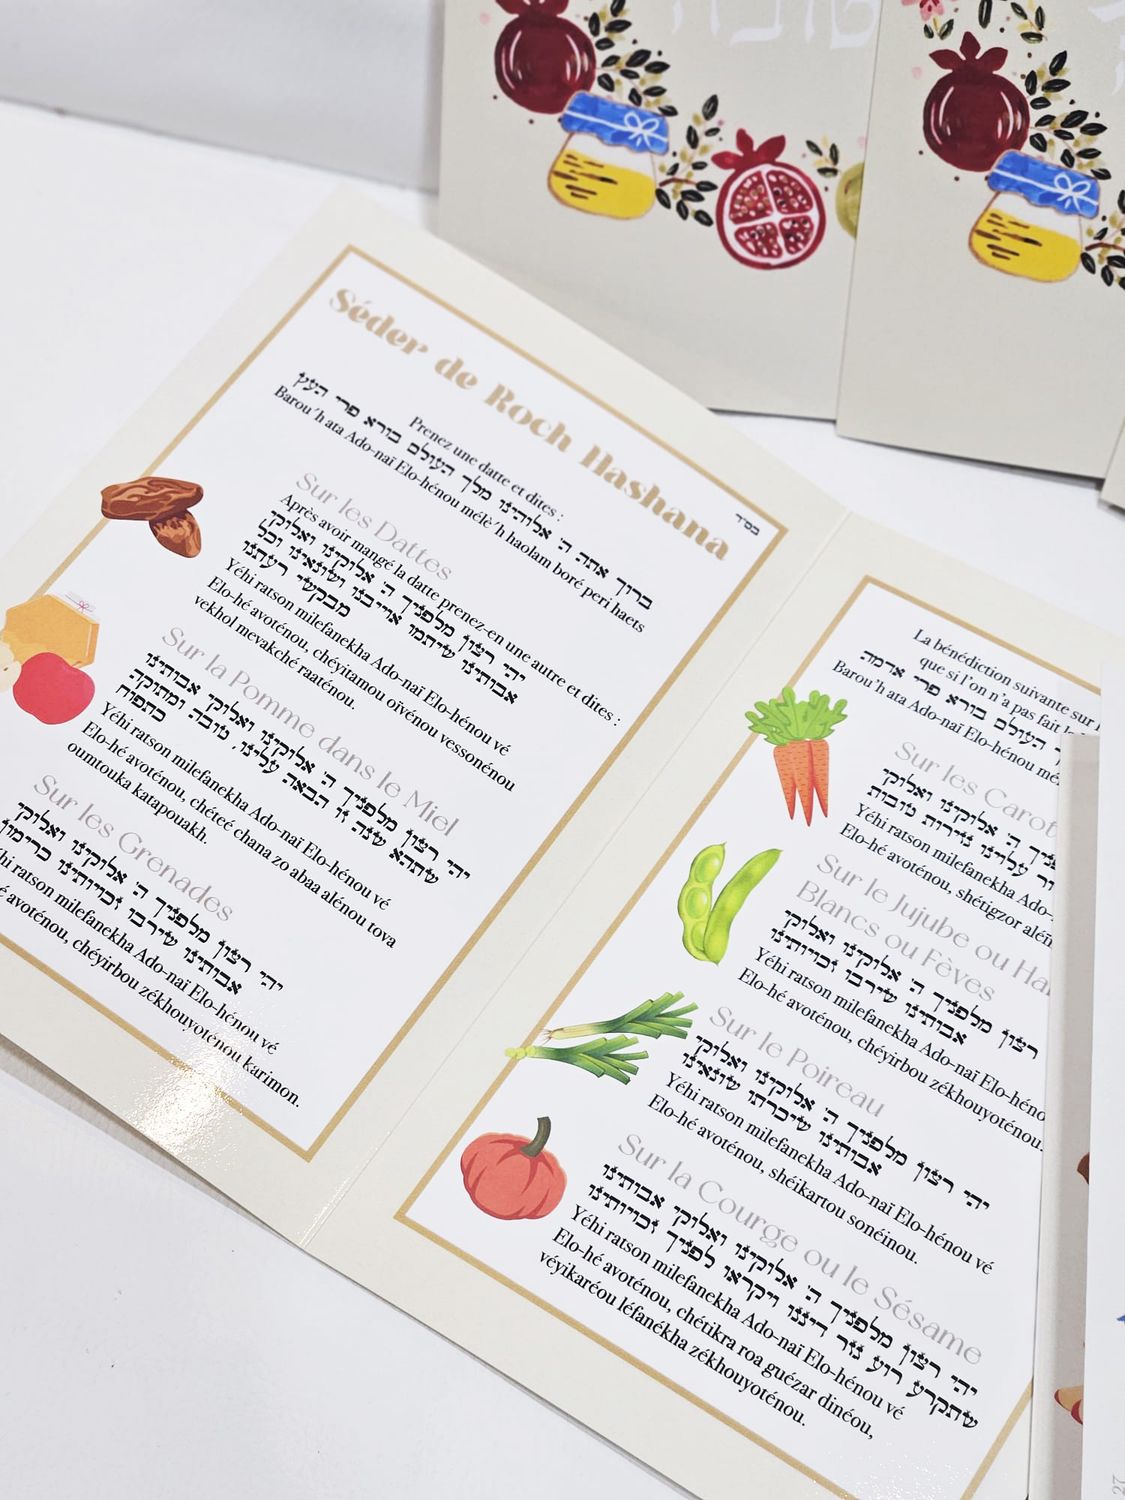 בס״ד
Séder de Roch Hashana
Prenez une datte et dites :
ברוך אתה ה׳ אלוהינו מלך העולם בורא פרי העץ
Barou'h ata Ado-naï Elo-hénou mélè'h haolam boré peri haets
Sur les Dattes
Après avoir mangé la datte prenez-en une autre et dites :
יהי רצון מלפניך ה׳ אלוקינו ואלוקי
אבותינו שיתמו אוייבנו ושונאינו וכל
מבקשי רעתנו
Yéhi ratson milefanekha Ado-naï Elo-hénou vé
Elo-hé avoténou, chéyitamou oïvénou vessonénou
vekhol mevakché raaténou.
Sur la Pomme dans le Miel
יהי רצון מלפניך ה׳ אלוקינו ואלוקי אבותינו
שתהא שנה זו הבאה עלינו, טובה ומתוקה
כתפוח
Yéhi ratson milefanekha Ado-naï Elo-hénou vé
Elo-hé avoténou, chéteé chana zo abaa alénou tova
oumtouka katapouakh.
Sur les Grenades
יהי רצון מלפניך ה׳ אלוקינו ואלוקי
אבותינו שירבו זכויותינו כרימון
ratson milefanekha Ado-naï Elo-hénou vé
avoténou, chéyirbou zékhouyoténou karimon.
La bénédiction suivante sur
que si l'on n'a pas fait
העולם בורא פרי אדמה
Barou'h ata Ado-naï Elo-hénou
Sur les
מלפניך ה׳ אלוקינו ואלוקי
עלינו גזירות טובות
Yéhi ratson milefanekha
Elo-hé avoténou, shétigzor
Sur le Jujube ou
Blancs ou Fèves
רצון מלפניך ה׳ אלוקינו ואלוקי
אבותינו שירבו זכויותינו
Yéhi ratson milefanekha Ado-naï
Elo-hé avoténou, chéyirbou zékhouyoténou.
Sur le Poireau
יהי רצון מלפניך ה׳ אלוקינו ואלוקי
אבותינו שיכרתו שונאינו
Yéhi ratson milefanekha Ado-naï Elo-hénou vé
Elo-hé avoténou, shéikartou sonéinou.
Sur la Courge ou le Sésame
יהי רצון מלפניך ה׳ אלוקינו ואלוקי אבותינו
שתקרע רוע גזר דיננו ויקראו לפניך זכויותינו
Yéhi ratson milefanekha Ado-naï Elo-hénou vé
Elo-hé avoténou, chétikra roa guézar dinéou,
véyikaréou léfanékha zékhouyoténou.
27